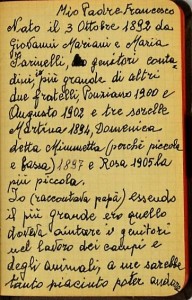 Mio Padre Francesco
Nato il 3 Ottobre 1892 da
Giovanni Mariani e Maria
Farinelli, genitori conta
dini, più grande di altri
due fratelli, Ponziano 1900 e
Augusto 1902 e tre sorelle
Martina 1894, Domenica
detta Mimmetta (perchè piccola
e bassa) 1897 e Rosa 1905 la
più piccola.
Io (raccontava papà) essendo
il più grande ero quello
doveva aiutare i genitori
nel lavoro dei campi e
degli animali, a me sarebbe
tanto piaciuto poter andare